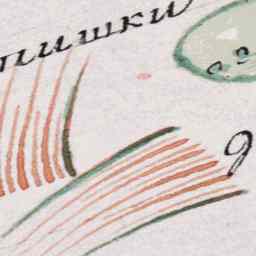 пишки
9